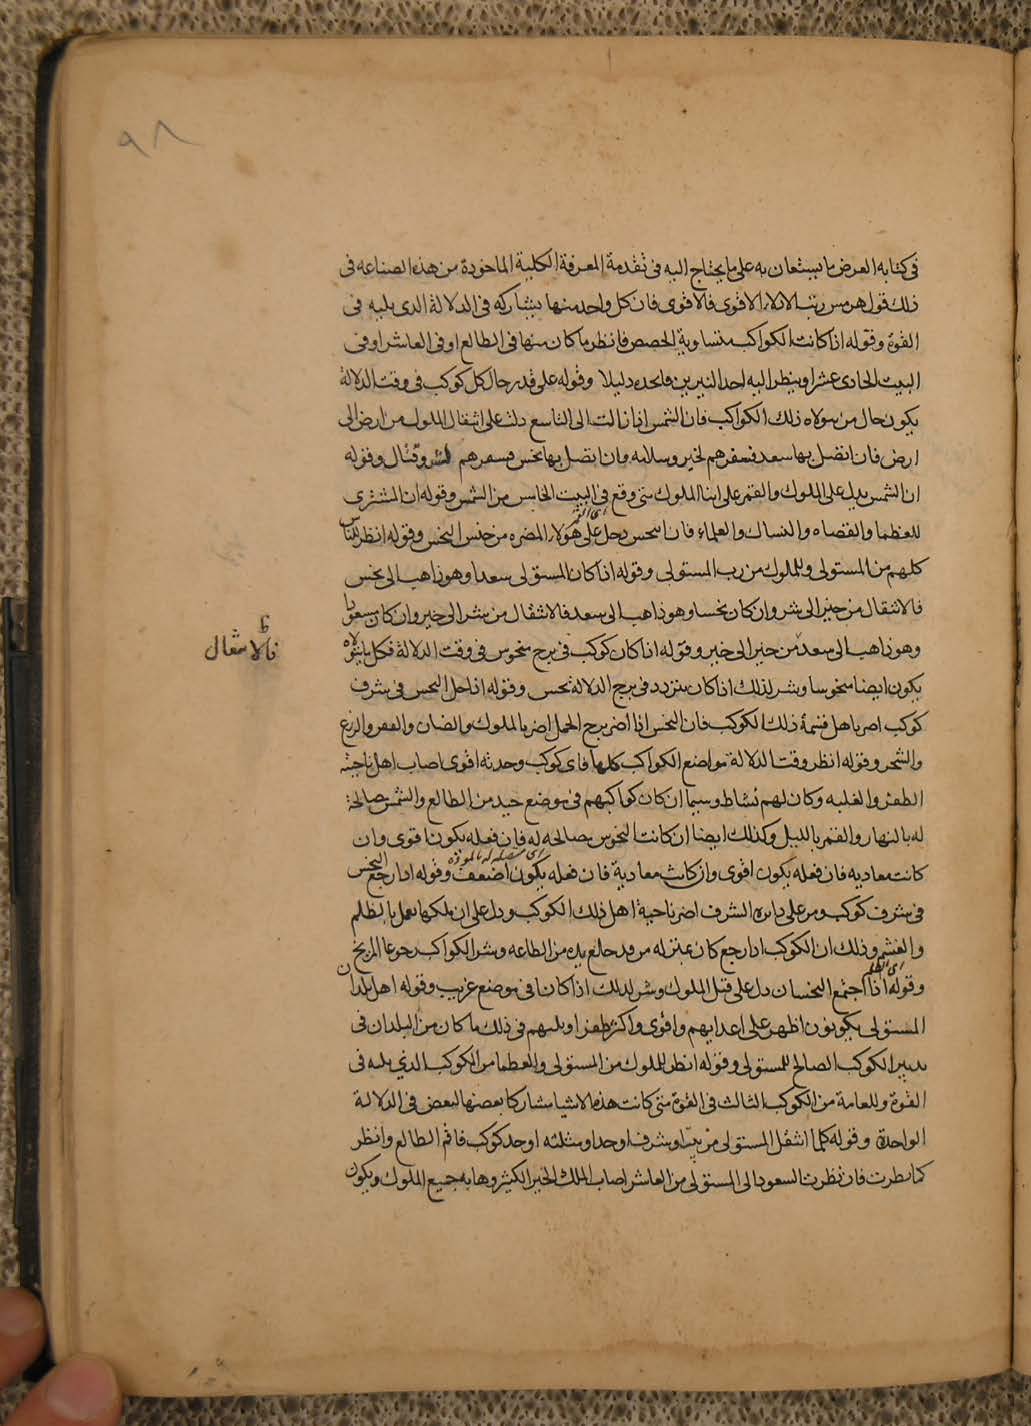 ٩٨
في كتابه العرض ما يستعان به على ما يحتاج اليه في تقدمة المعرفة الكلية الماخوذة من هذه الصناعه في
ذلك قول هرمس رتب الادلاء الاقوى فالاقوى فان كل واحد منها يشاركه في الدلالة الذي يليه في
القوة وقوله اذا كانت الكواكب متساوية الحصص فانظر ما كان منها في الطالع او في العاشر او في
البيت الحادي عشر او ينظر اليه احد النيرين فاتخذه دليلا وقوله على قدر حال كل كوكب في وقت الدلالة
يكون حال من تولاه ذلك الكواكب فان الشمس اذا زالت الى التاسع دلت على انتقال الملوك من ارض الى
ارض فان اتصل بها سعد فسفرهم لخير وسلامه وان اتصل بها نحس فسفرهم لشر وقتال وقوله
ان الشمس يدل على الملوك والقمر على ابنا الملوك متى وقع في البيت الخامس من الشمس وقوله ان المشترى
للعظما والقضاه والنساك والعلماء فان انتحس دخل على هولاء المضره من جنس النحس وقوله انظر للناس
كلهم من المستولى وللملوك من رب المستولى وقوله اذا كان المستولى سعدا وهو ذاهب الى نحس
فالانتقال من خير الى شر وان كان نحسا وهو ذاهب الى سعد فالانتقال من شر الى خير وان كان سعودا
وهو ذاهب الى سعد من خير الى خير وقوله اذا كان كوكب في برج منحوس في وقت الدلالة فكل ما يتولاه
فالانتقال
يكون ايضا منحوسا وشر لذلك اذا كان يتردد في برج الدلالة نحس وقوله اذا حل النحس في شرف
كوكب اضر باهل قسمة ذلك الكوكب فان النحس اذا اضر برج الحمل اضر بالملوك والضان والعفر والزرع
والشجر وقوله انظر وقت الدلالة مواضع الكواكب كلها فاي كوكب وجدته اقوى اصاب اهل ناحيته
الظفر والغلبه وكان لهم نشاط وسيما ان كان كواكبهم في موضع جيد من الطالع والشمس صالحة
له بالنهار والقمر بالليل وكذلك ايضا ان كانت النحوس مصالحه له فان فعله يكون اقوى وان
كانت معاديه فان فعله يكون اقوى وان كانت معادية فان فعله يكون اضعف وقوله اذا رجع النحس
في شرف كوكب ومر على دايره الشرف اضر ناحية اهل ذلك الكوكب ودل على ان ملكها يعمل بالظلم
والغشم وذلك ان الكوكب اذا رجع كان بمنزله من قد خلع يده من الطاعه وشر الكواكب رجوعا المريخ
وقوله اذا اجتمع النحسان دل على قتل الملوك وشر لذلك اذا كانا في موضع غريب وقوله اهل بلدان
المستولى يكونون اظهر على اعدايهم واقوى واكثر ظفرا ويليهم في ذلك ما كان من البلدان في
تدبير الكوكب الصالح للمستولى وقوله انظر للملوك من المستولى والعظما من الكوكب الذي يليه في
القوة وللعامة من الكوكب الثالث في القوة متى كانت هذه الاشيا مشاركا بعضها لبعض في الدلالة
الواحدة وقوله كلما انتقل المستولى من بيت او شرف او حد او مثلثه او حد كوكب فاقم الطالع وانظر
كما نظرت فان نظرت السعود الى المستولى من العاشر اصاب الملك الخير الكثير وهابه جميع الملوك ويكون